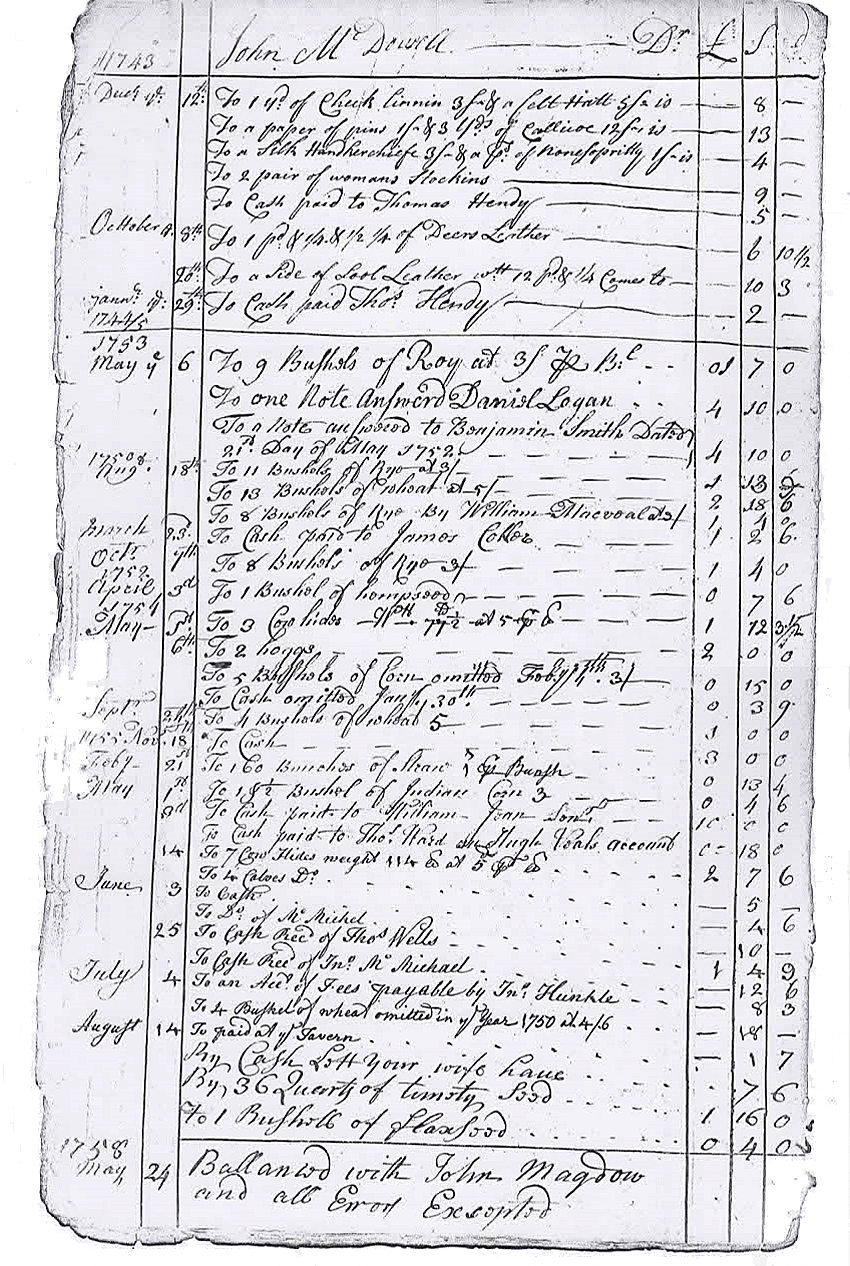 1743 John Mc Dowell Dr £ S d
12th To 1 yd of Check linnin 3s & a felt Hatt 5s is 8 —
To a paper of pins 1s & 3 yds of Callicoe 12s is 13 —
To a Silk Handkerchiefe 3s & a ps of Nonesopritty 1s is 4 —
To 2 pair of womans Stockins 9 —
To Cash paid to Thomas Hendy 5 —
October 8th To 1 pd & 1/4 & 1/2 1/4 of Deers Leather 6 10 1/2
20th To a Side of Sool Leather wtt 12 pd & 1/4 Comes to 10 3
Janry ye 29th To Cash paid Thos Hendy 2 —
1744/5
1753
May ye 6 To 9 Bushels of Roy at 3/ 01 7 0
To one Note Answerd Daniel Logan 4 10 0
To a Note answered to Benjamin Smith Dated
21st Day of May 1752 4 10 0
Augt 18th To 11 Bushels of Rye at 3/
To 13 Bushels of wheat at 5/
To 8 Bushels of Rye By William
March 23 To Cash paid to James 1 2 6
Octr 9th To 8 Bushels of Rye 3/ 1 4 0
1752
April 3d To 1 Bushel of hempseed 0 7 6
1754
May 5th To 3 Cow hides Wtt 77 1/2 at 5 1 12 3 1/2
6th To 2 hoggs 2 0 0
To 5 Bushels of Corn omitted Feby 4th 3/ 0 15 0
To Cash omitted Jany 30th 0 3 9
Septr 24th To 4 Bushels of wheat 5 1 0 0
1755 Nov. 18 To Cash 3 0 0
Feby 21st To 160 Bunches of Straw 0 13 4
May 1st To 1 & 1/2 Bushel of Indian Corn 3 0 4 6
2d To Cash paid to William Jean
To Cash paid to Thos Ward on Hugh Veals account 18
14 To 7 Cow Hides weight 114 lb at 5d 2 7 6
To 4 Calves Do — 5 —
June 3 To Cash 4 6
To Do of Mc Michel 10 —
25 To Cash Recd of Thos Wells 1 4 9
To Cash Recd of Jno Mc Michael — 12 6
July 4 To an Acct of Fees payable by Jno Hunkle 8 3
To 4 Bushel of wheat omitted in ye Year 1750 at 4/6 18 —
August 14 To paid at ye Tavern — 1 7
By Cash Lett your wife have 7 6
By 36 Quarts of timoty Seed 1 16 0
To 1 Bushels of flaxseed 0 4 0
1758
May 24 Ballanced with John Magdow
and all Erors Excepted